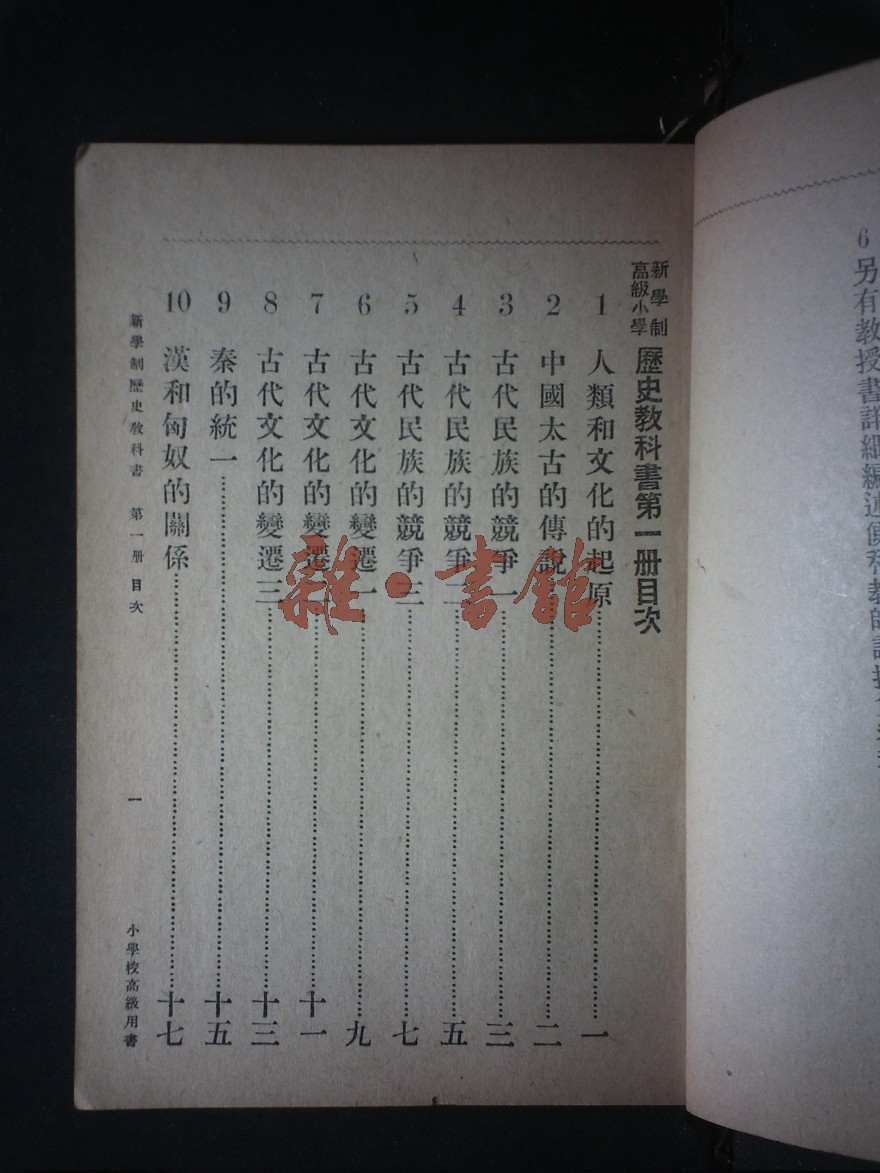 6 另有教授書詳細編述便利教師
新學制
高級小學
歷史教科書第一册目次
1 人類和文化的起原…一
2 中國太古的傳說…二
3 古代民族的競爭一…三
4 古代民族的競爭二…五
5 古代民族的競爭三…七
6 古代文化的變遷一…九
7 古代文化的變遷二…十一
8 古代文化的變遷三…十三
9 秦的統一…十五
10 漢和匈奴的關係…十七
新學制歷史教科書 第一册 目次 一 小學校高級用書
雜·書館